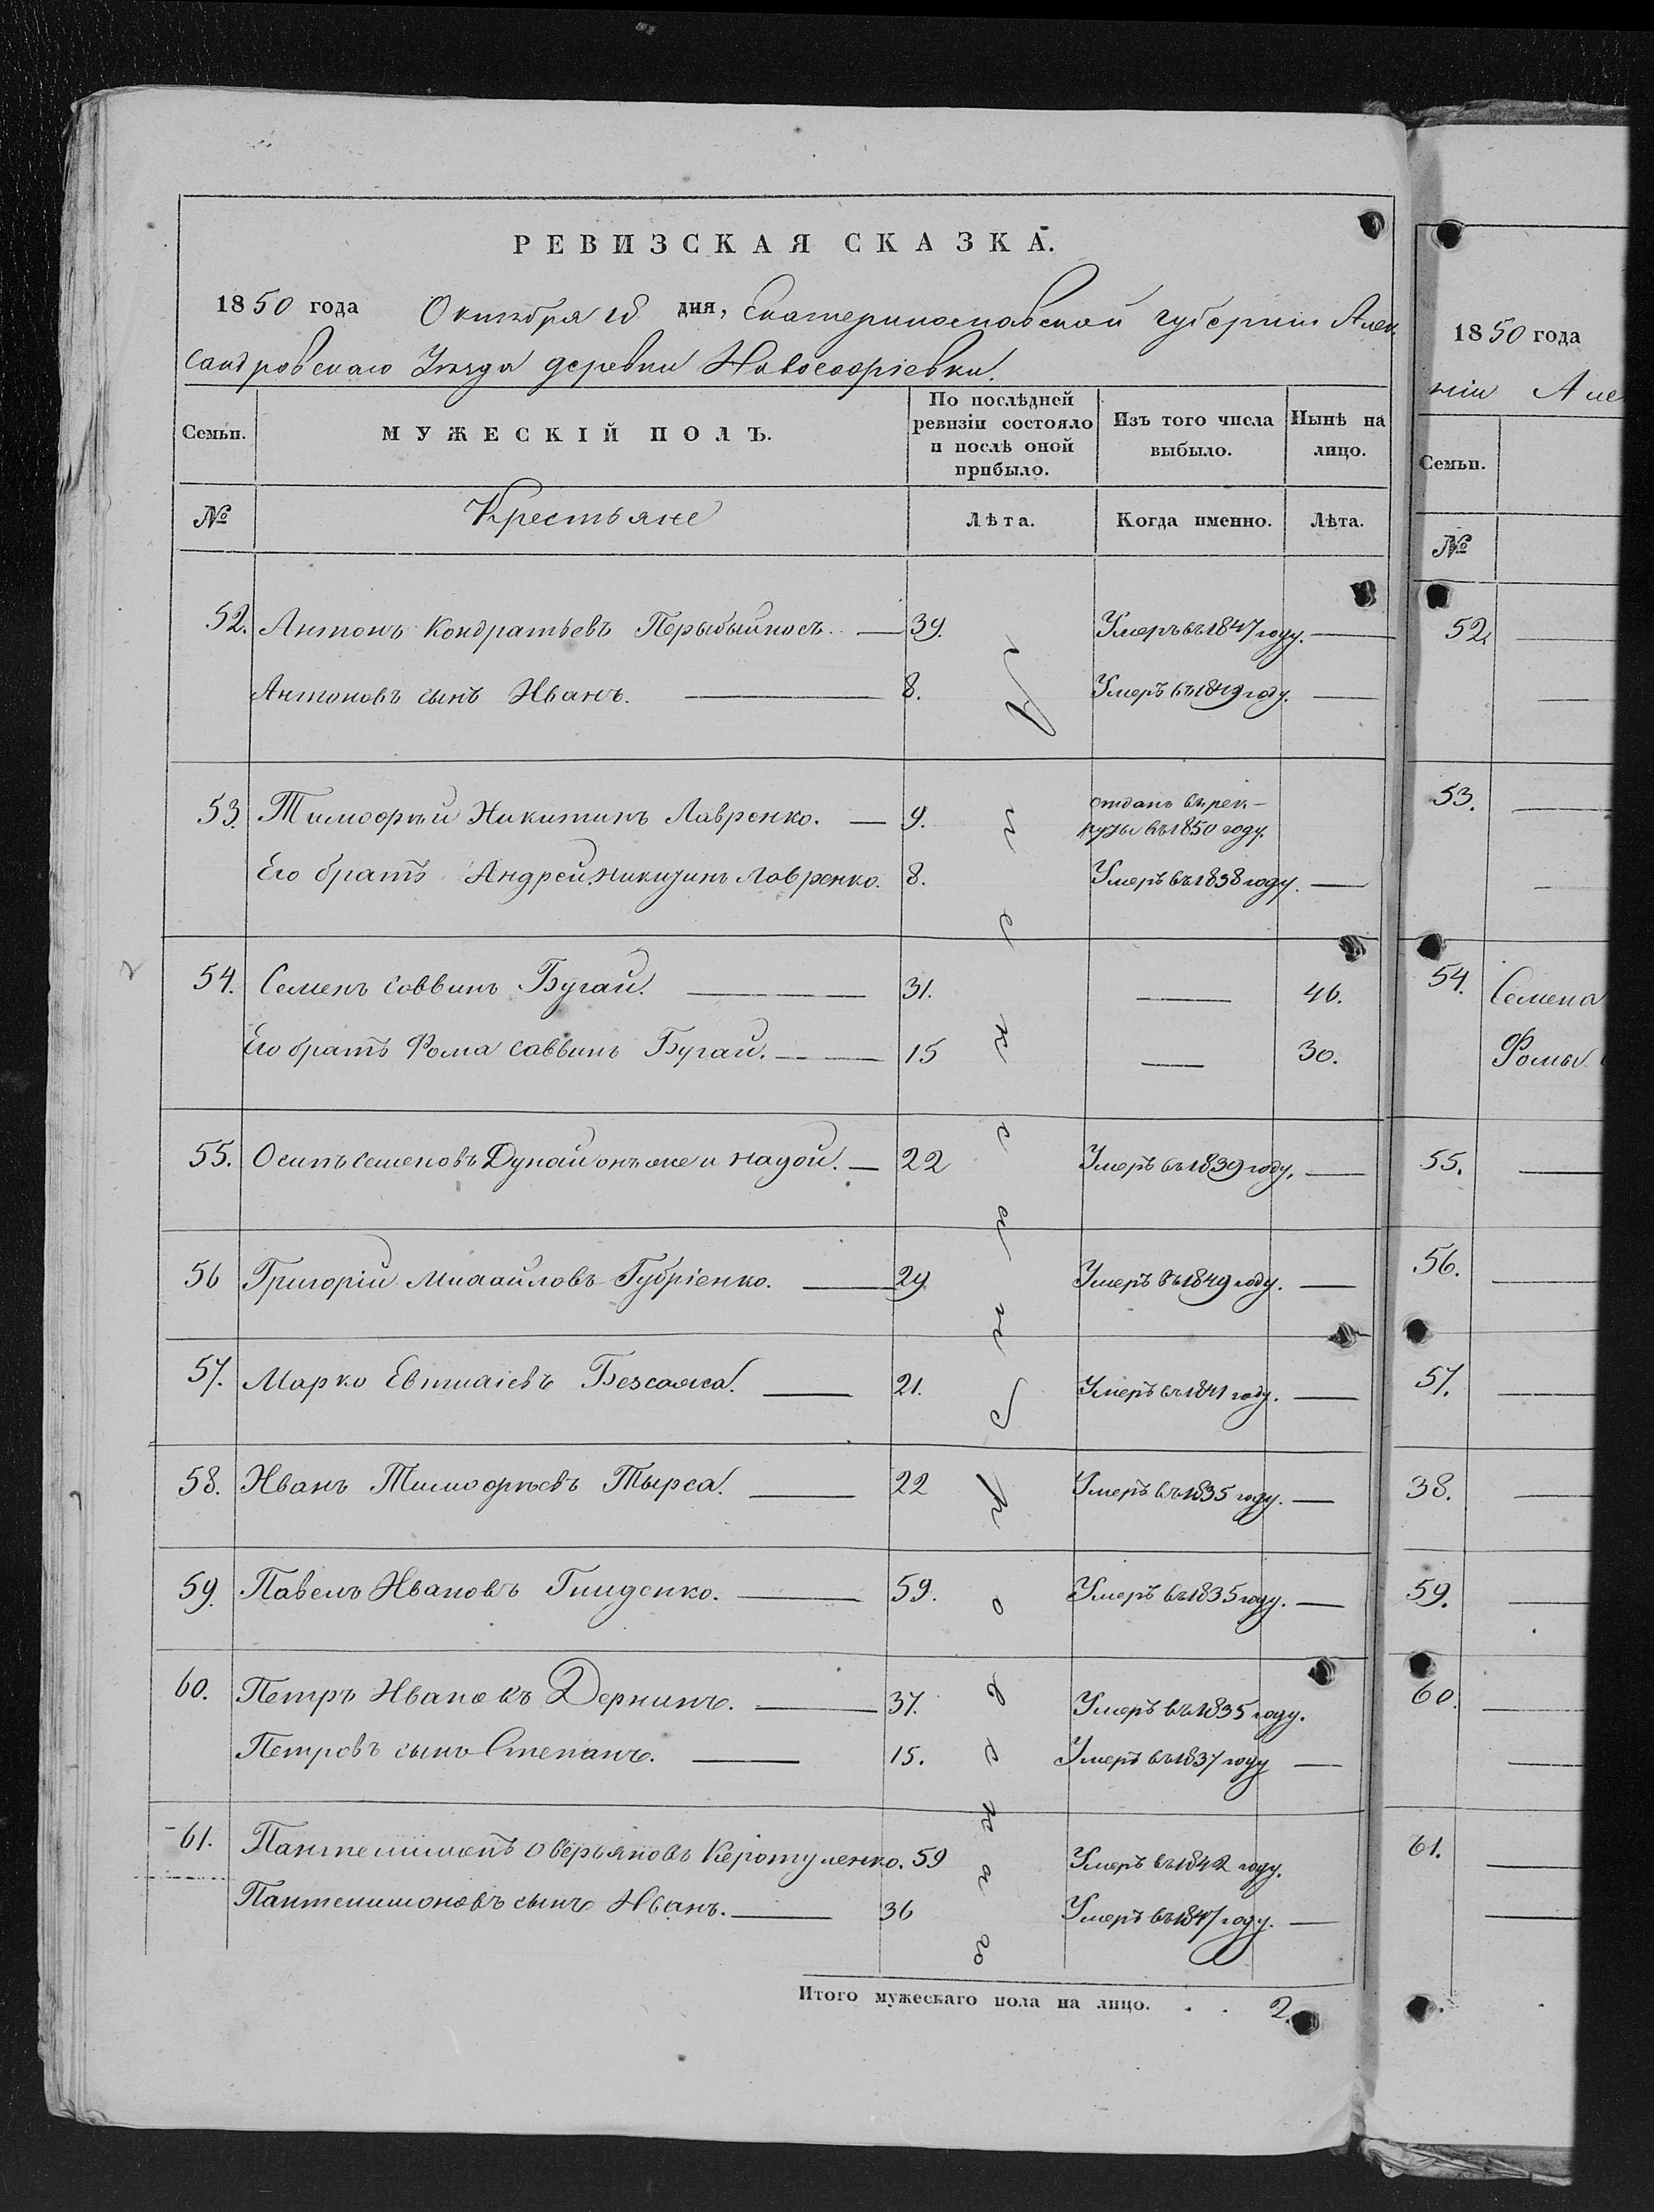 РЕВИЗСКАЯ СКАЗКА.
1850 года Октября 18 дня, Екатеринославской губернии Алек
сандровскаго Уѣзда деревни Новософіевки.
Семьи. МУЖЕСКІЙ ПОЛЪ. По послѣдней ревизіи состояло и послѣ оной прибыло. Изъ того числа выбыло. Нынѣ на лицо.
№ Крестьяне Лѣта. Когда именно. Лѣта.
52. Антонъ Кондратьевъ 39. Умеръ въ 1847 году.
Антоновъ сынъ Иванъ. 8. Умеръ въ 1849 году.
53. Тимофѣй Никитинъ Лавренко. 9. отданъ въ рек-
руты въ 1850 году.
Его братъ Андрей Никитинъ Лавренко. 8. Умеръ въ 1838 году.
54. Семенъ Саввинъ Бугай. 31. 46.
Его братъ Фома Саввинъ Бугай. 15 30.
55. Осипъ Семеновъ Дунай онъ же и 22 Умеръ въ 1839 году.
56 Григорій Михайловъ 29 Умеръ въ 1849 году.
57. Марко 21. Умеръ въ 1841 году.
58. Иванъ Тимофѣевъ Тырса. 22 Умеръ въ 1835 году.
59. Павелъ Ивановъ 59. Умеръ въ 1835 году.
60. Петръ Ивановъ 37. Умеръ въ 1835 году.
Петровъ сынъ Степанъ. 15. Умеръ въ 1837 году
61. Пантелимонъ Оверьяновъ 59 Умеръ въ 1842 году.
Пантелимоновъ сынъ Иванъ. 36 Умеръ въ 1847 году.
Итого мужескаго пола на лицо. . . 2.
1850 года
ніи Але
Семьи.
№
52.
53.
54. Семена
Фомы
55.
56.
57.
58.
59.
60.
61.